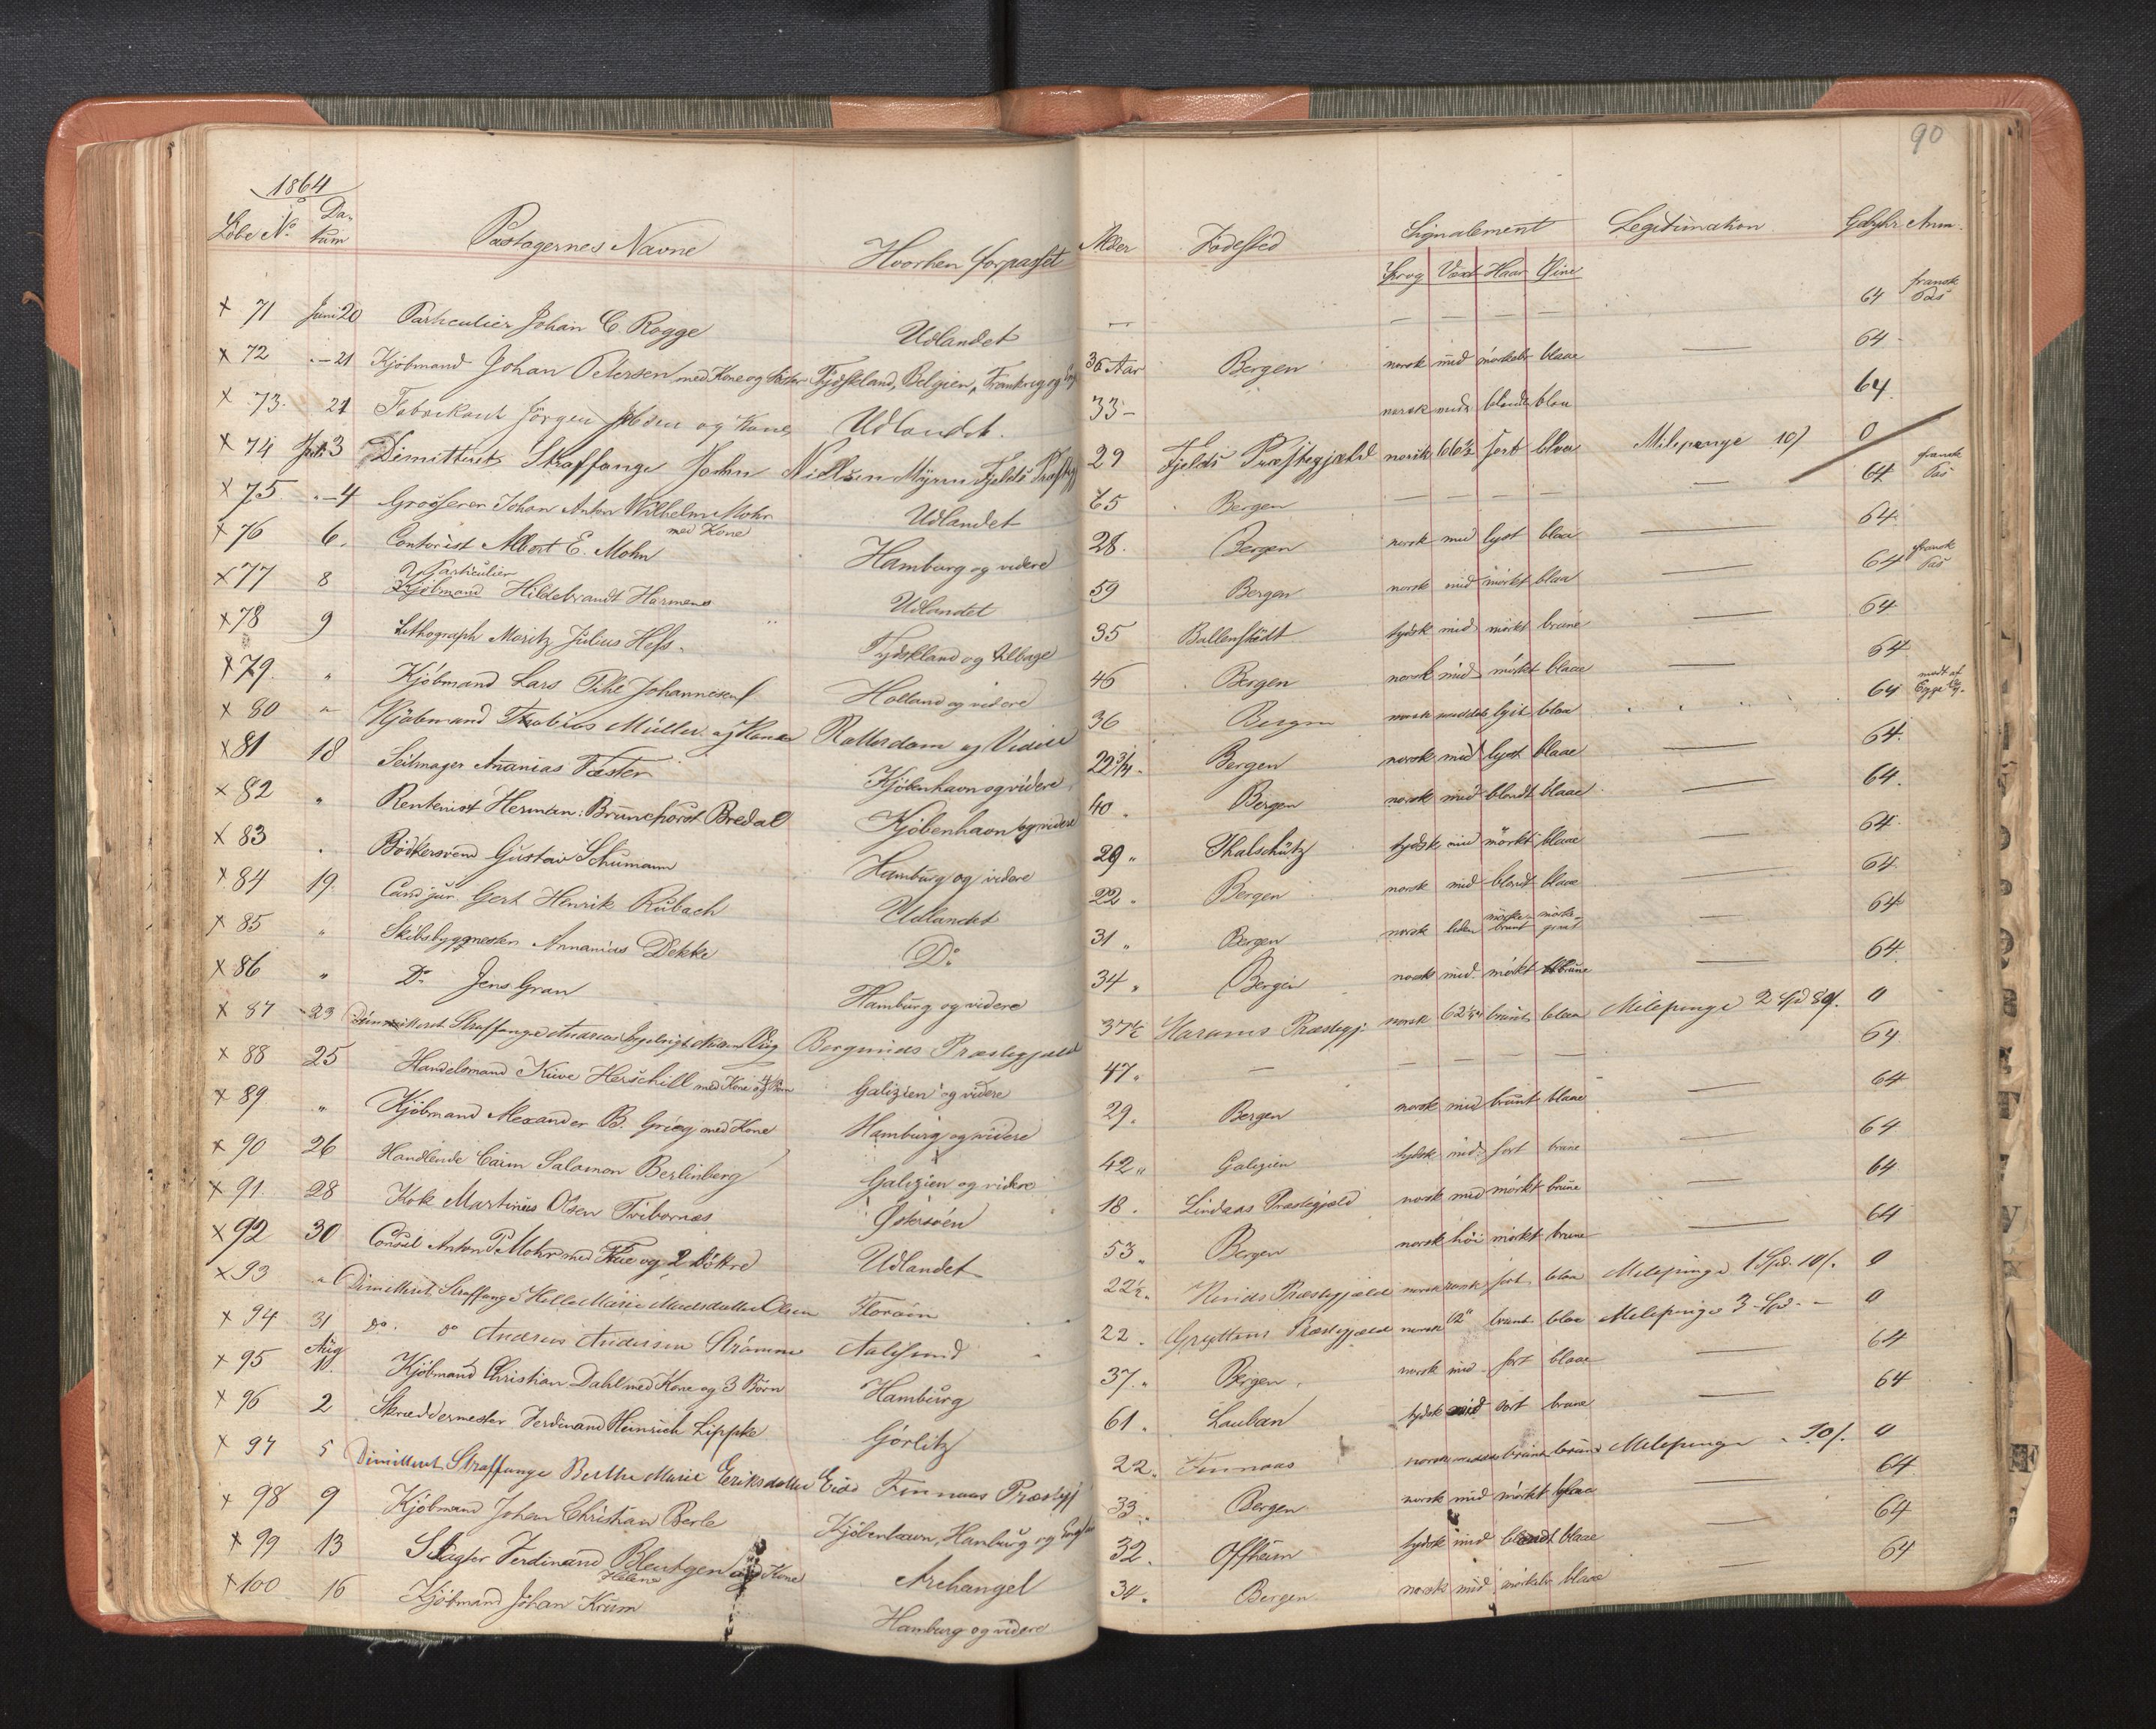 90
1864
Løbe No. Da- tum Pastagernes Navne Hvorhen forpasset Alder Fødested Signalement Legitimation Gebyhr Anm.
Sprog Vext Haar Øine
x 71 Juni 20 Particulier Johan C. Rogge Udlandet — — — — — 64 fransk Pas
x 72 " — 21 Kjøbmand Johan Petersen med Kone og Tydskland, Belgien, Frankrig og 36 Aar Bergen norsk mid mørkebr blaae — 64
x 73. 21 Fabrikant Jørgen og Kone Udlandet. 33 — norsk mids blonde blaa 64
x 74 Juli 3 Dimitteret Straffange John Nielsen Myren Fjelds Præstegj 29 Fjelds Præstegjæld norsk 66½ sort blaa Milepenge 10/ 0
x 75 " — 4 Grosserer Johan Anton Wilhelm Mohr Udlandet 65 Bergen — — — — — 64 fransk Pas
med Kone
x 76 6. Contorist Albert E. Mohn Hamburg og videre 28. Bergen norsk mid lyst blaa — 64
x 77 8 Particulier Kjøbmand Hildebrandt Harmens Udlandet 59 Bergen norsk mid mørkt blaa — 64 fransk Pas
x 78 9 Lithograph Moritz Julius Hess. Tydskland og tilbage 35 Ballenstedt tydsk mid mørkt brune — 64
x 79. " Kjøbmand Lars Pihl Johannesen Holland og videre 46 Bergen norsk mid mørkt blaae — 64
x 80 " Kjøbmand Tobias Müller og Kone Rotterdam og Videre 36 Bergen norsk middels lyst blaa " " " 64
x 81 18 Seilmager Ananias Fæster Kjøbenhavn og videre 22 3/4. Bergen norsk mid lyst blaae — 64.
x 82 " Rentenist Herman Brunchorst Bredal Kjøbenhavn og videre 40. Bergen norsk mid blondt blaae — 64.
x 83 " Bødkersvend Gustav Schumann Hamburg og videre 29 " Thalschütz tydsk mid mørkt blaae — 64
x 84 19. Cand jur. Gert Henrik Rubach Udlandet 22. Bergen norsk mid blondt blaae — 64.
x 85 " Skibsbygmester Annanias Dekke Do 31 " Bergen norsk liden mørke- brunt mørke- graat — 64
x 86 " Do Jens Gran Hamburg og videre 34 " Bergen norsk mid. mørkt brune — 64.
x 87 - 23 Dimitteret Straffange Andreas Ingebrigt Nilsen Vig Borgunds Præstegjæld 37½ Harams Præstegj. norsk 62¼" brunt blaa Milepenge 2 Spd 80/. 0
x 88 25 Handelsmand Kiwe Herschill med Kone og Børn Galizien og videre 47. — — — — — 64
x 89 " Kjøbmand Alexander B. Grieg med Kone Hamburg og videre 29. Bergen norsk mid brunt blaae — 64
x 90 26 Handlende Caim Salomon Berlinberg Galizien og videre 42 " Galizien tydsk mid. sort brune — 64
x 91. 28 Kok Martinus Olsen Tvibornæs Østersøen 18. Lindaas Præstegjæld norsk mid mørkt brune — 64
x 92 30 Consul Anton P Mohr med Frue og 2 Døttre Udlandet 53 " Bergen norsk høi mørkt brune — 64
x 93 " Dimitteret Straffange Helle Marie Madsdatter Olsen Florøen 22½. Præstegjæld norsk sort blaa Milepenge 1 Spd. 10/. 0
x 94 31 do. do Andreas Andersen Strømme Aalesund 22. Gryttens Præstegjæld norsk 62" brunt blaa Milepenge 3 Spd. — 0
x 95 Aug 1. Kjøbmand Christian Dahl med Kone og 3 Børn Hamburg 37. " Bergen norsk mid sort blaae — 64
x 96 2 Skræddermester Ferdinand Heinrich Lippke Görlitz 61. Lauban tydsk mid sort brune — 64
x 97 5 Dimitteret Straffange Berthe Marie Eriksdatter Eide Finnaas Præstegj 22. Finnaas norsk middels brunt brune Milepenge " 90/. 0
x 98 9 Kjøbmand Johan Christian Berle Kjøbenhavn, Hamburg og 33 " Bergen norsk mid mørkt blaae — 64
x 99 13 Slagter Ferdinand Bleutgen med Kone Archangel 32. Offheim tydsk mid blondt blaae — 64
Helene
x 100 16 Kjøbmand Johan Krum Hamburg og videre 34. Bergen norsk mid mørkebr blaae — 64